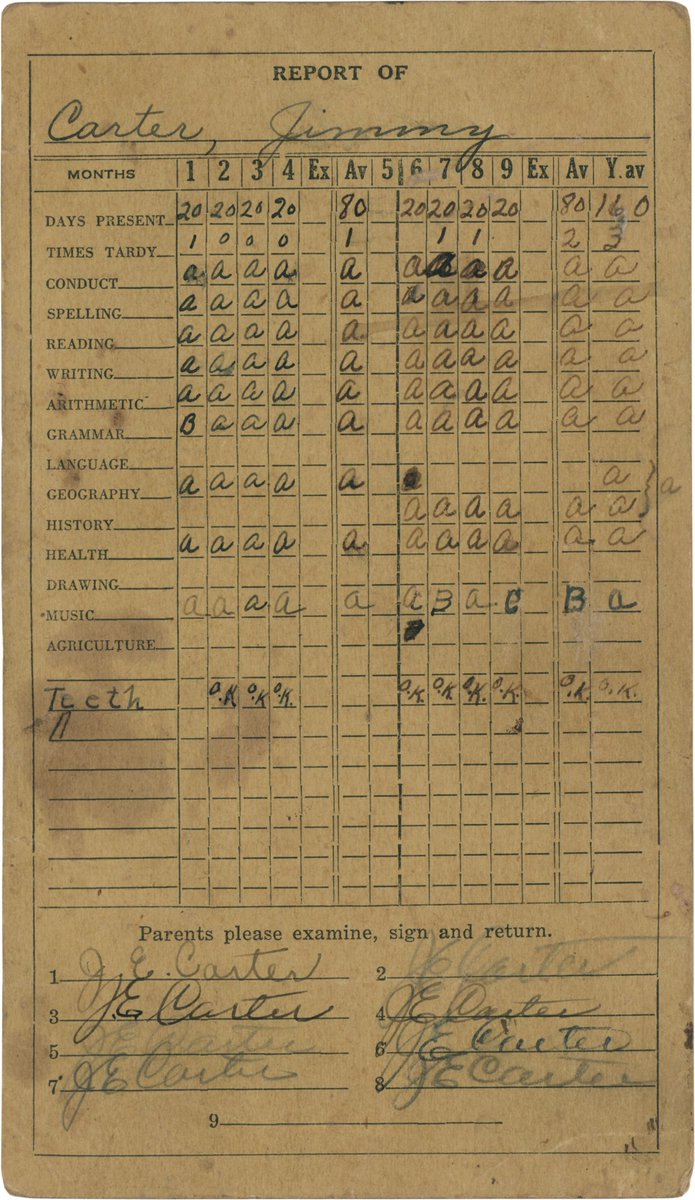 REPORT OF
Carter, Jimmy
MONTHS 1 2 3 4 Ex Av 5 6 7 8 9 Ex Av Y.av
DAYS PRESENT 20 20 20 20 80 20 20 20 20 80 160
TIMES TARDY 1 0 0 0 1 1 1 2 3
CONDUCT a a a a a a a a a a a
SPELLING a a a a a a a a a a a
READING a a a a a a a a a a a
WRITING a a a a a a a a a a a
ARITHMETIC a a a a a a a a a a a
GRAMMAR B a a a a a a a a a a
LANGUAGE
GEOGRAPHY a a a a a a a
HISTORY a a a a a a
HEALTH a a a a a a a a a a a
DRAWING
MUSIC a a a a a a B a C B a
AGRICULTURE
Teeth O.K O.K O.K. O.K. O.K O.K. O.K. O.K. O.K.
Parents please examine, sign and return.
1 J. E. Carter 2 J E Carter
3 J. E. Carter 4 J E Carter
5 J E Carter 6 J E Carter
7 J E Carter 8 J E Carter
9